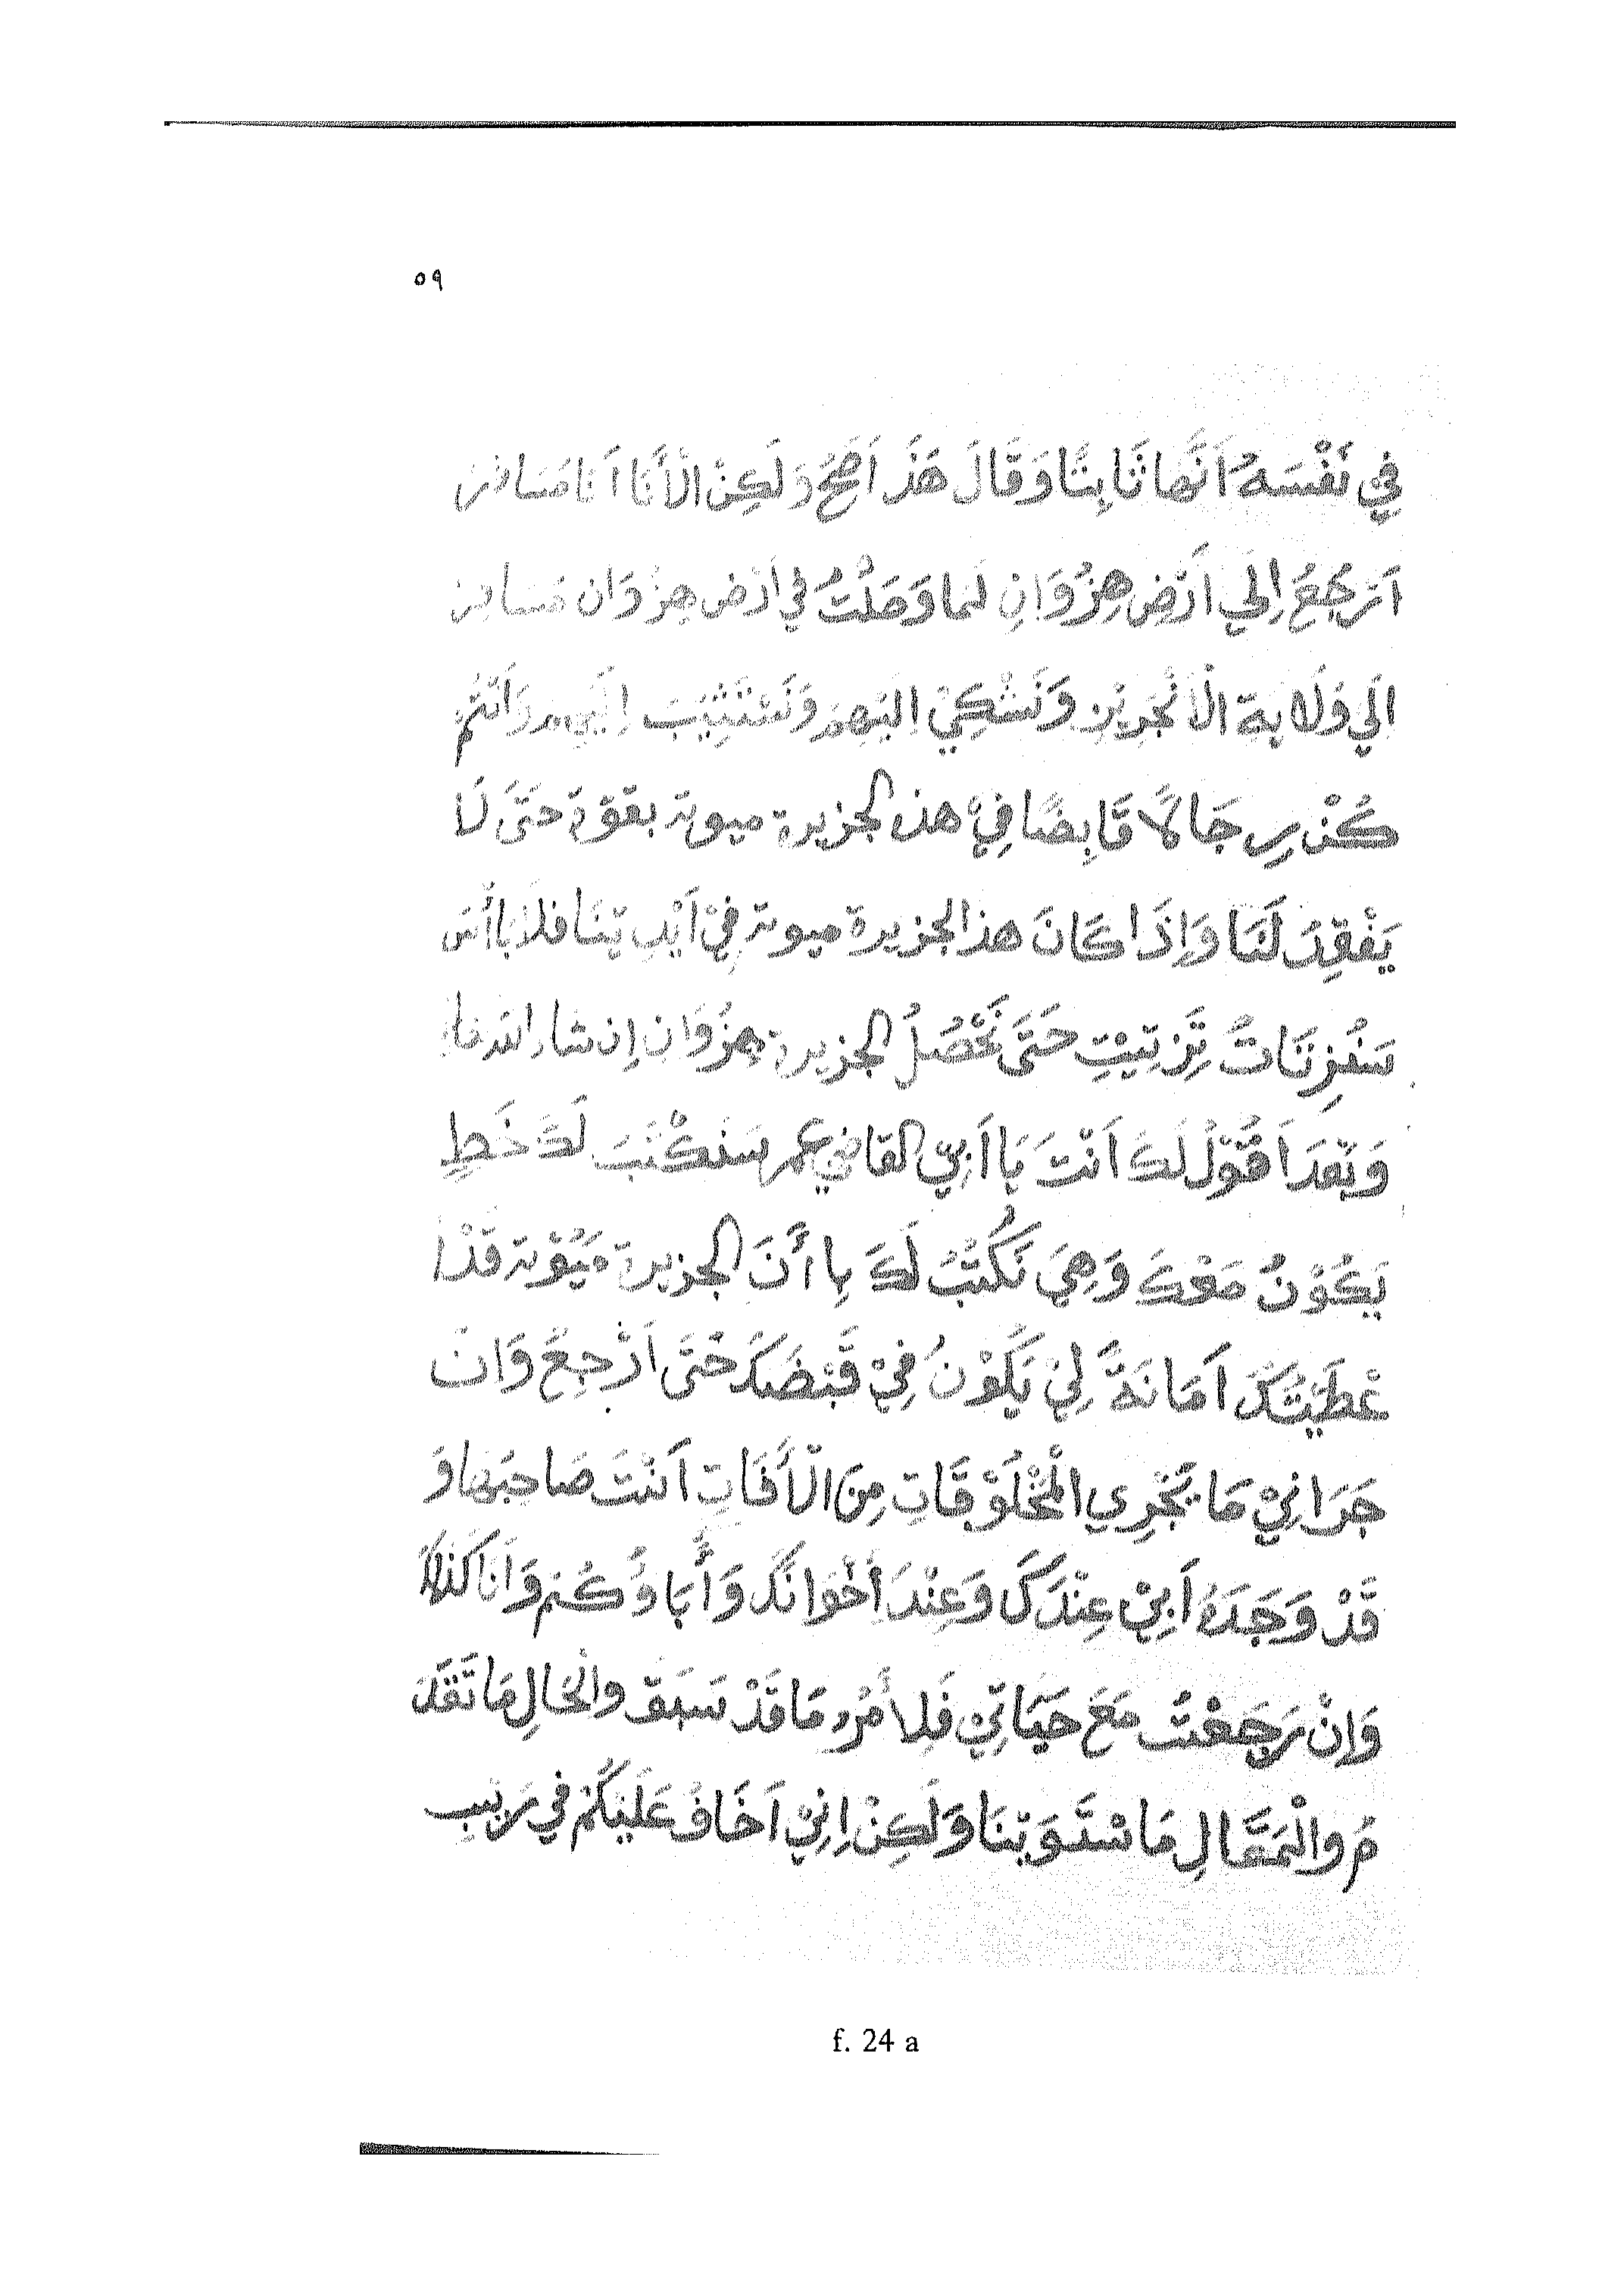 ٥٩
فِي نَفْسَهُ اَنَّهَا ثَابِتًا وَقَالَ هَذَ اَصَحُّ وَلَكِنْ اْلأَنَا اَنَا مُسَافِرْ
اَرْجَعُ اِلَي اَرْضِ هِزُوَانِ لَمَا وَصَلْتُ فِي اَرْضِ هِزُوَان مُسَافِرْ
اَلَي وُلَايَةِ اْلَانْجَرِيْزِ وَنَشْكِيْ اِلَيْهِمْ وَنَسْتَثِيْبَ اِلَيْهِمْ وَاَنْتُمْ
كُنْ رِجَالًا قَابِضًا فِيْ هذه الجزيرة ميوتة بقوّة حَتَىَ لَا
يَفْقِدَ لَنَا وَاِذَا كَانَ هذا الجزيرة ميوتة فِيْ اَيْدِيْنَا فلا بَاأْسَ
حَتَىَ نَحْصُلُ الجزيرة هِزُوَانِ اِن شاء الله
وَبَعْدَ اَقُوْلُ لَكَ اَنْتَ يَا اَبِيْ القاضي عمر سَنَكْتُبَ لَكَ خَطِ
يَكُوْنُ مَعْكَ وَهِيَ نَكْتُبُ لَكَ بِاأَنَ الجزيرة مَيُوْتة قَدْ ا
عْطَيْتُكَ اَمَانَةً لِيْ يَكُوْنُ فِيْ قَبْضَكَ حَتَى اَرْجِعَ وَانْ
جَرَانِيْ مَا يَجْرِي الْمَخْلُوْقَاتِ مِنَ اْلأَفَاتِ اَنْتَ صَاحِبُهَا وَ
قَدْ وَجَدَهُ اَبِيْ عِنْدَكَ وَعِنْدَ اَخْوَانَكَ وَأَبَاؤُكُمْ وَاَنَا كَذَلِكَ
وَاِنْ رَجَعْتُ مَعَ حَيَاتِيْ فَلِاَمْرُ مَا قَدْ سَبَقَ وَالْحَالِ مَا تَقَدَ
مُ وَالْمَقَالِ مَاسْتَوَيْنَا وَلَكِنْ اِنِيْ اَخَافُ عَلَيْكُمْ فِي رَيْبِ
f. 24 a